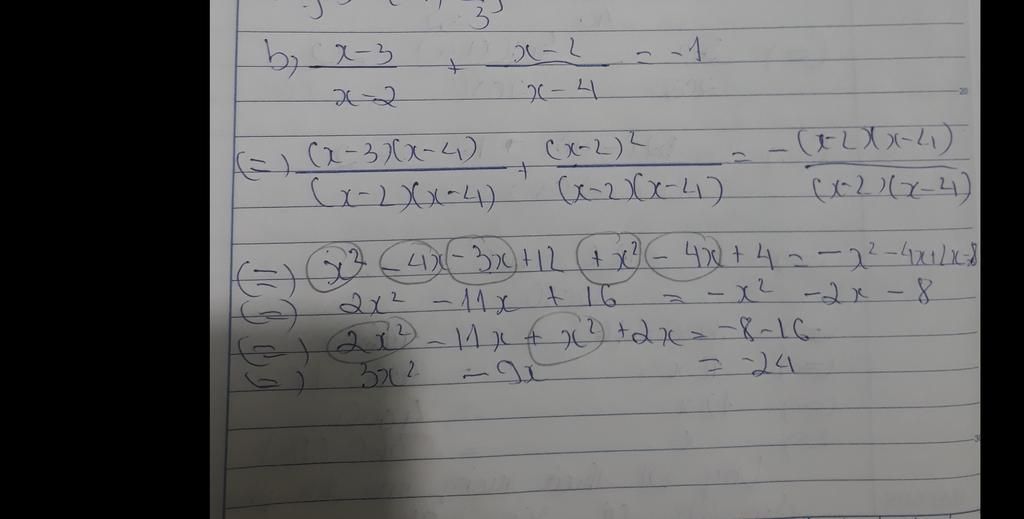 b, (x-3)/(x-2) + (x-2)/(x-4) = -1
(=) (x-3)(x-4)/(x-2)(x-4) + (x-2)²/(x-2)(x-4) = - (x-2)(x-4)/(x-2)(x-4)
(=) x² - 4x - 3x + 12 + x² - 4x + 4 = - x² - 4x + 2x - 8
(=) 2x² - 11x + 16 = - x² - 2x - 8
(=) 2x² - 11x + x² + 2x = -8 - 16
(=) 3x² - 9x = -24